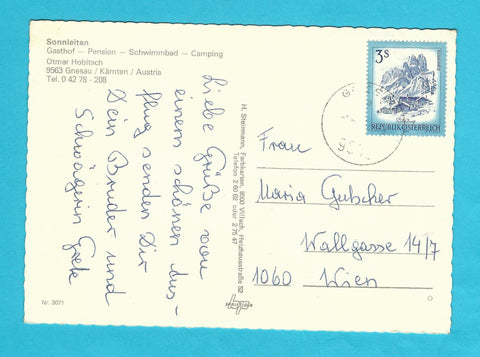 Sonnleiten
Gasthof — Pension — Schwimmbad — Camping
Otmar Hobitsch
9563 Gnesau / Kärnten / Austria
Tel. 0 42 78 - 208
Liebe Grüße von
einem schönen Aus-
flug senden Dir
Dein Bruder und
Schwägerin Grete
H. Steinmann, Farbkarten, 9500 Villach, Heizhausstraße 52
Telefon 2 60 02 oder 2 75 47
3 S
REPUBLIK ÖSTERREICH
Frau
Maria Gutscher
Wallgasse 14/7
1060 Wien
Nr. 3071